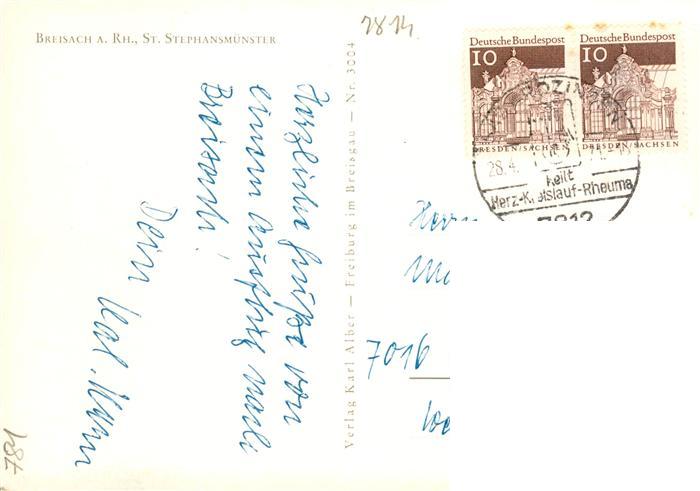 BREISACH A. RH., ST. STEPHANSMÜNSTER
2814
Deutsche Bundespost
10
DRESDEN/SACHSEN
Deutsche Bundespost
10
DRESDEN/SACHSEN
KROZINGEN
28.4.
heilt
Herz-Kreislauf-Rheuma
7812
Herzliche Grüße von
einem Ausflug nach
Breisach!
Dein
Verlag Karl Alber — Freiburg im Breisgau — Nr. 3004
Herrn
7016
784